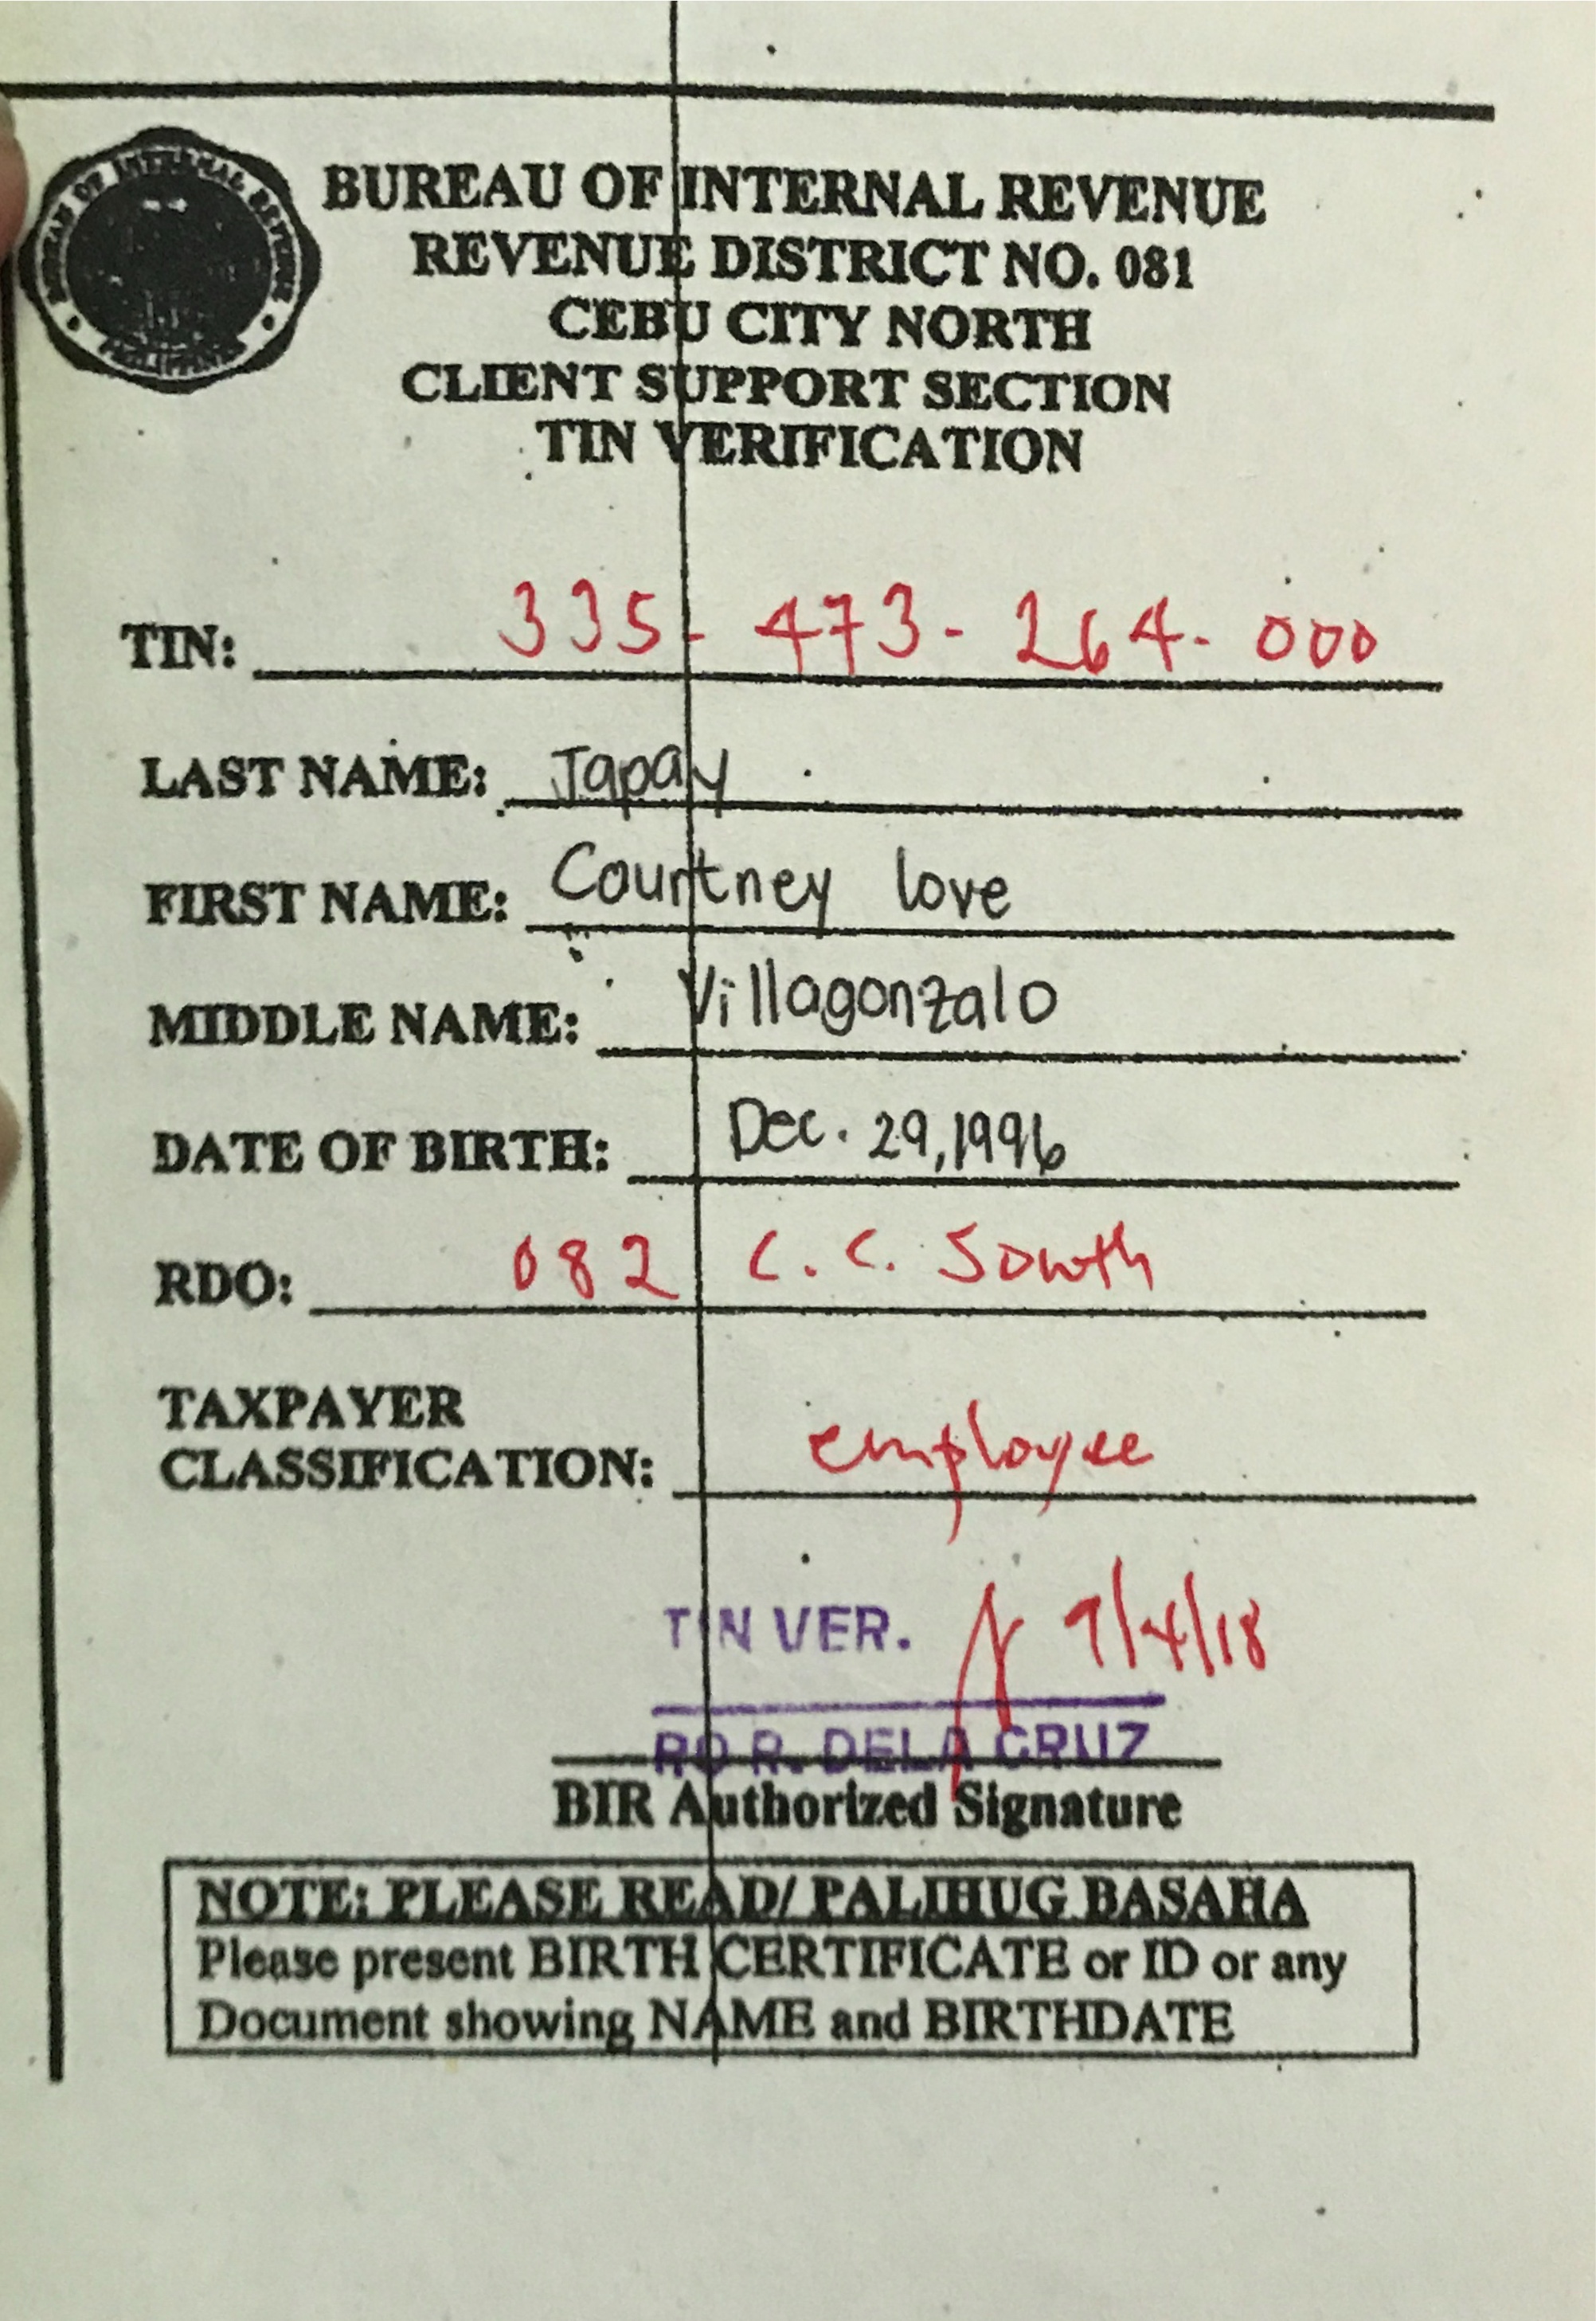 BUREAU OF INTERNAL REVENUE
PHILIPPINES
BUREAU OF INTERNAL REVENUE
REVENUE DISTRICT NO. 081
CEBU CITY NORTH
CLIENT SUPPORT SECTION
TIN VERIFICATION
TIN: 335- 473- 264- 000
LAST NAME: Japay
FIRST NAME: Courtney love
MIDDLE NAME: Villagonzalo
DATE OF BIRTH: Dec. 29, 1996
RDO: 082 C.C. South
TAXPAYER
CLASSIFICATION: employee
TIN VER. 9/4/18
RO R. DELA CRUZ
BIR Authorized Signature
NOTE: PLEASE READ/ PALIHUG BASAHA
Please present BIRTH CERTIFICATE or ID or any
Document showing NAME and BIRTHDATE